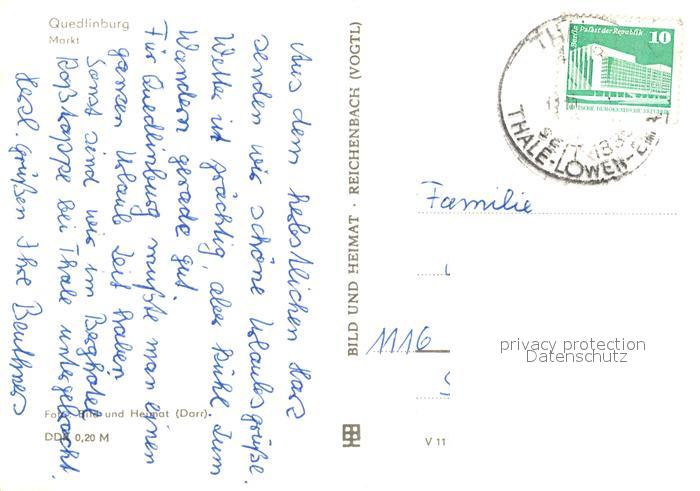 Quedlinburg
Markt
Aus dem herbstlichen Harz
senden wir schöne Urlaubsgrüße.
Wetter ist prächtig, aber kühl. Zum
Wandern gerade gut.
Für Quedlinburg müßte man einen
ganzen Urlaub Zeit haben
Sonst sind wir im Berghotel
Roßtrappe bei Thale untergebracht.
Herzl. Grüßen Ihre Beuthners
Foto: Bild und Heimat (Darr)
DDR 0,20 M
BILD UND HEIMAT · REICHENBACH (VOGTL)
V 11
Berlin Palast der Republik 10
DEUTSCHE DEMOKRATISCHE REPUBLIK
SEIT
THALE-LÖWEN-
Familie
1116
privacy protection
Datenschutz